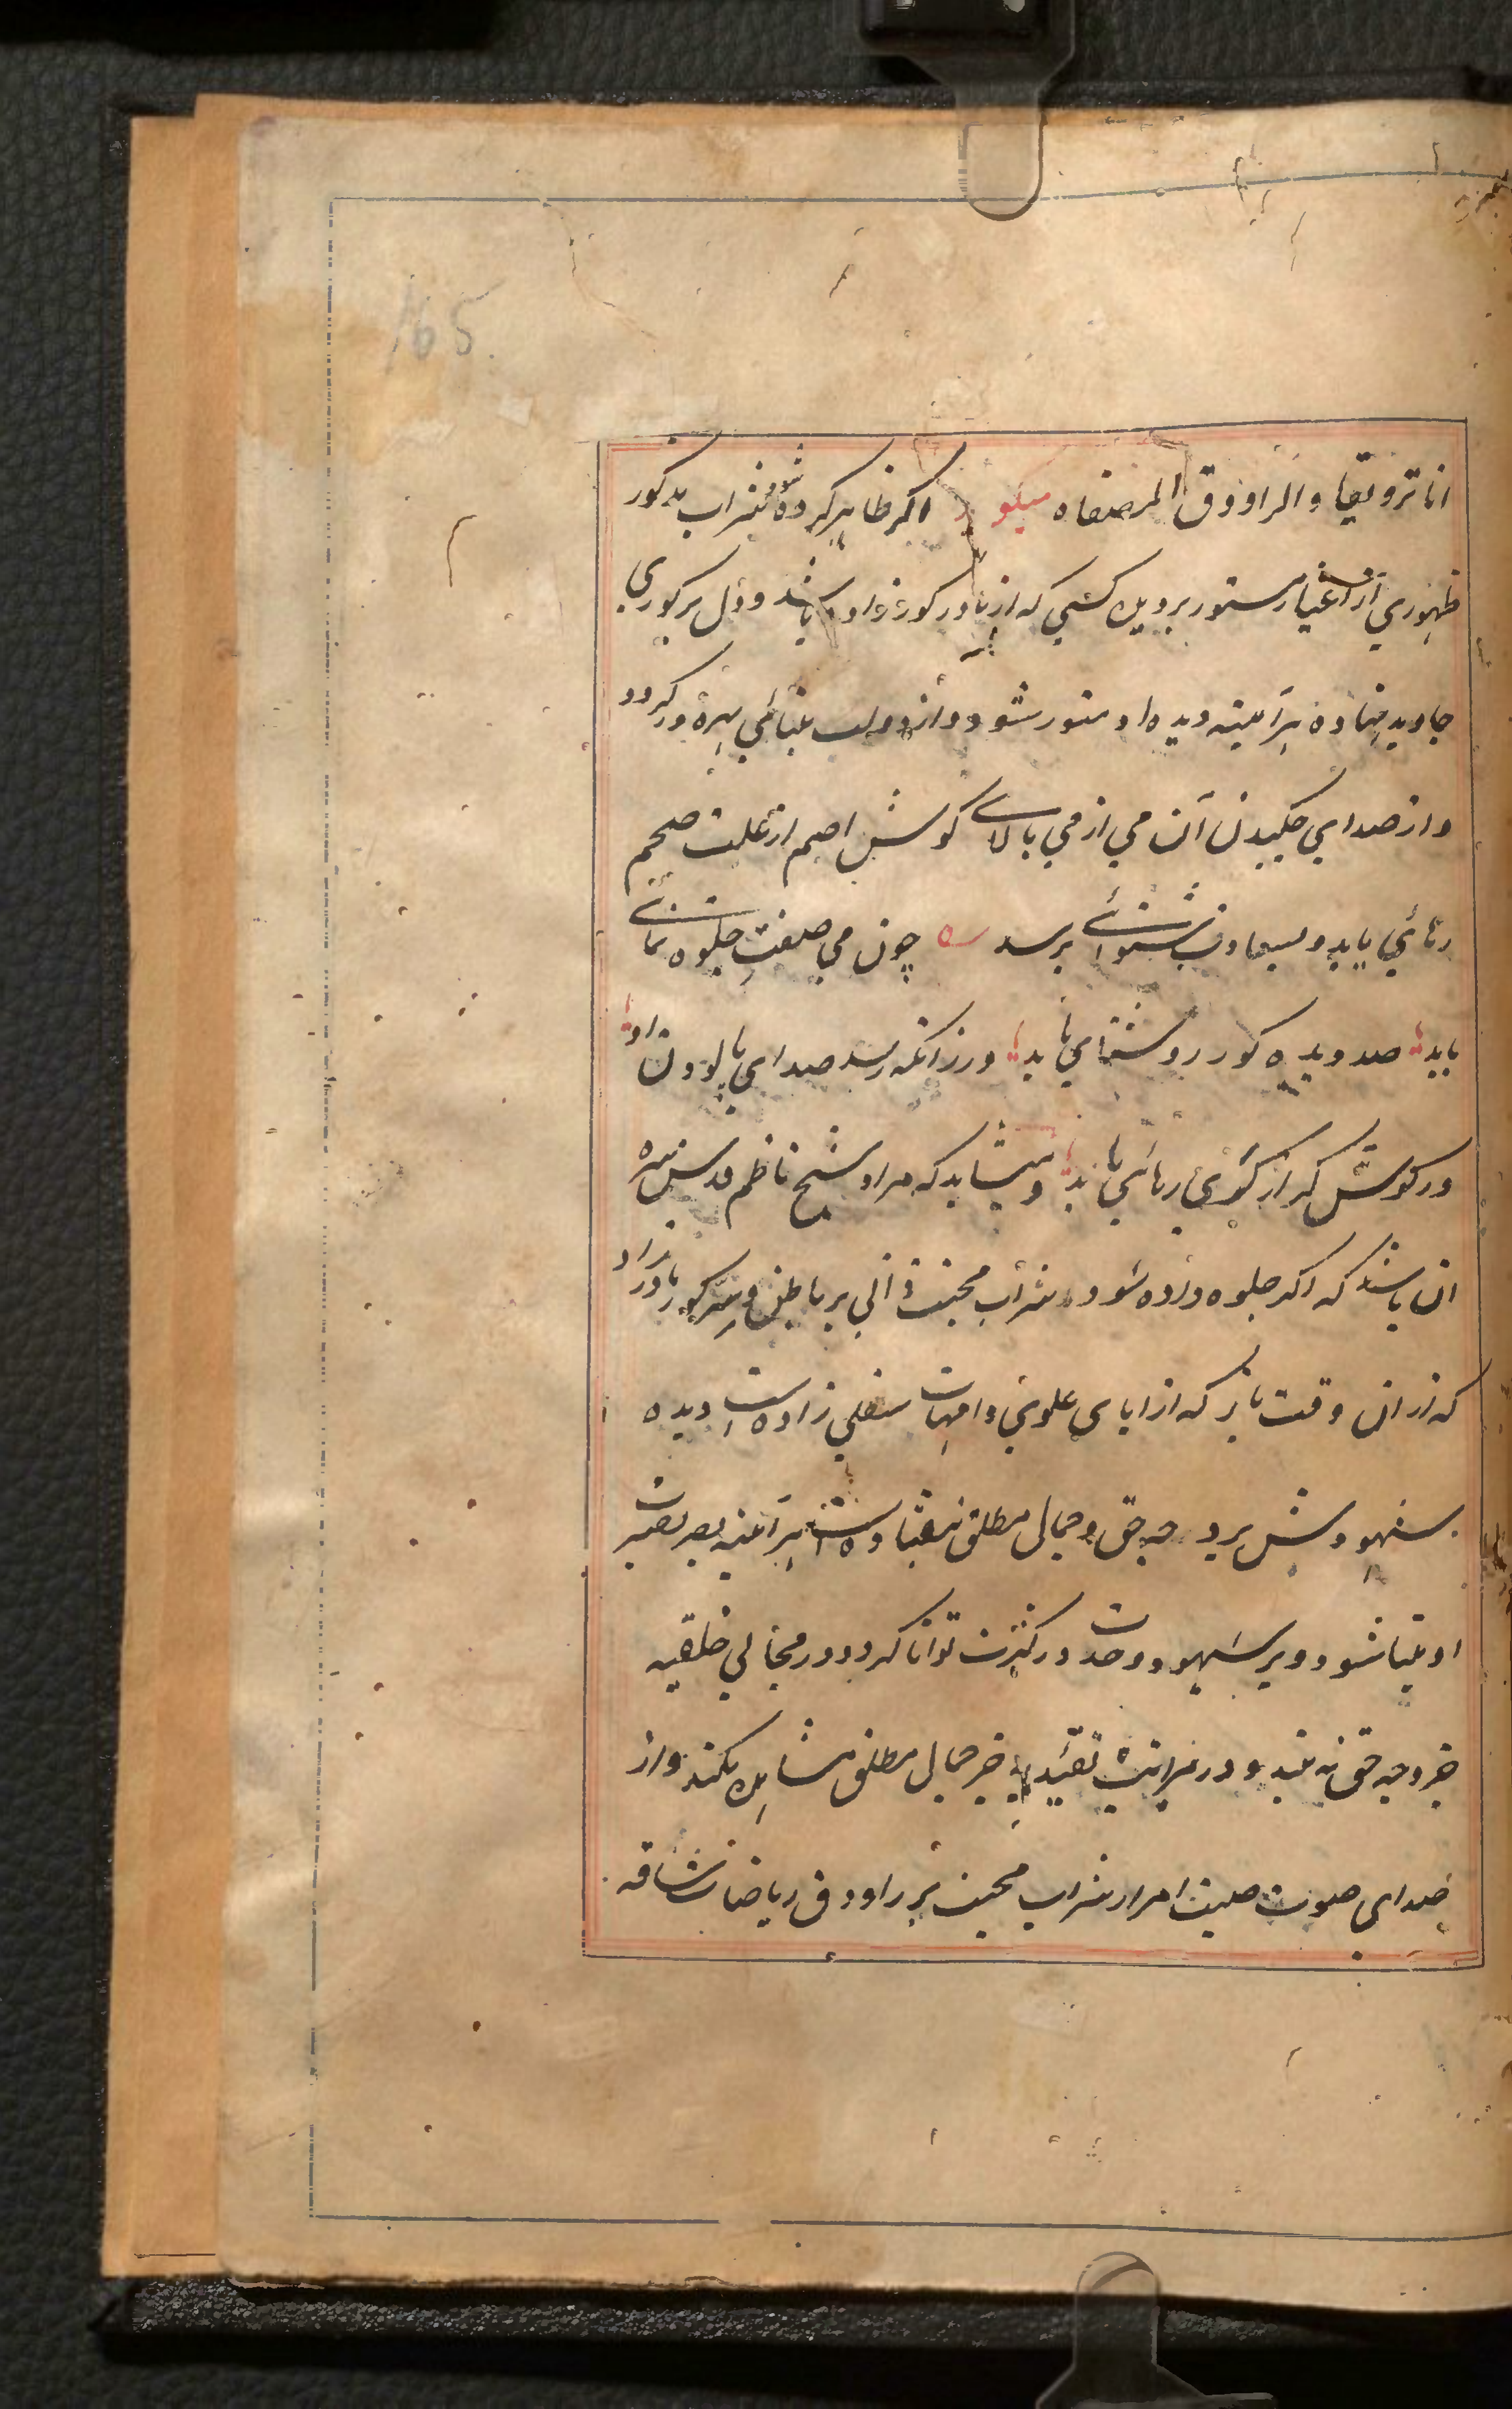 165.
انا ترویقا والراووق المصفاه میگو د اکر ظاهر کرده شود شراب مذکور
ظهوری از اغیار مستور بر دیده کسی که از مادر کور زاده باشد و دل بر کوری
جاوید نهاده هرآینه دیده او منور شود و از دولت بینائی بهره ور کردد
و از صدای چکیدن آن می از می بالای کوش اصم از علت صمم
رهائی یابد و بسعادت شنوائی برسد ه چون می صفت جلوه نمائی
یابد صد دیده کور روشنائی یابد ور زانکه رسد صدای پالودن او
در کوش کر از کری رهائی یابد و میشاید که مراد شیخ ناظم قدس سره
ان باشد که اکر جلوه داده شود شراب محبت ذاتی بر باطن و سر کور مادرزاد
که از ان وقت باز که از ابای علوی و امهات سفلی زاده است دیده
شهودش بر وجه حق و جمال مطلق نیفتاده است هرآینه بصر بصیرت
او بینا شود و بر شهود وحدت در کثرت توانا کردد و در مجالی خلقیه
جز وجه حق نه بیند و در مراتب تقییدیه جز جمال مطلق مشاهده نکند و از
صدای صوت صیت امرار شراب محبت بر راووق ریاضات شاقه